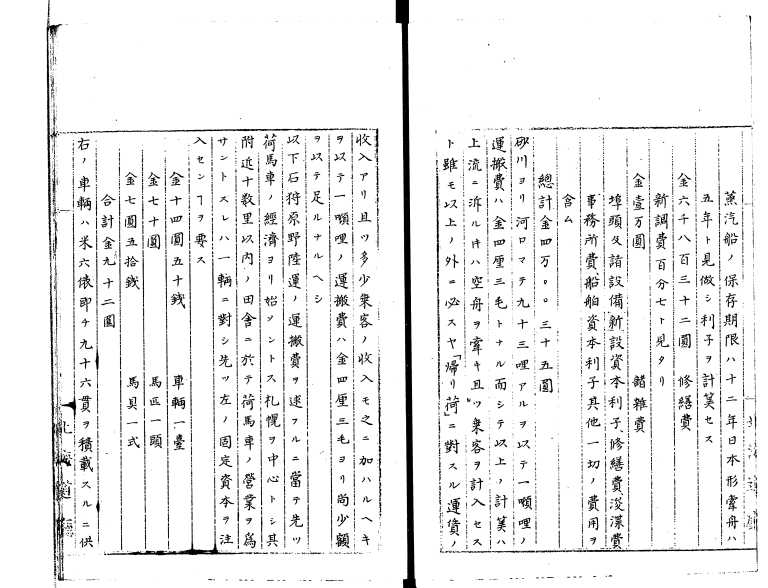 蒸汽船ノ保存期限ハ十二年日本形牽舟ハ
五年ト見做シ利子ヲ計算セス
金六千八百三十二圓　修繕費
新調費百分七ト見タリ
金壹万圓　諸雜費
埠頭及諸設備新設資本利子修繕費浚渫費
事務所費船舶資本利子其他一切ノ費用ヲ
含ム
總計金四万〇〇三十五圓
砂川ヨリ河口マテ九十三哩アルヲ以テ一噸哩ノ
運搬費ハ金四厘三毛トナル而シテ以上ノ計算ハ
上流ニ泝ル片ハ空舟ヲ牽キ且ツ乗客ヲ計入セス
ト雖モ以上ノ外ニ必スヤ「帰リ荷」ニ對スル運賃ノ
收入アリ且ツ多少乗客ノ收入モ之ニ加ハルヘキ
ヲ以テ一噸哩ノ運搬費ハ金四厘三毛ヨリ尚少額
ヲ以テ足ルナルヘシ
以下石狩原野陸運ノ運搬費ヲ述フルニ當テ先ツ
荷馬車ノ經濟ヨリ始メントス札幌ヲ中心トシ其
附近十数里以内ノ田舎ニ於テ荷馬車ノ營業ヲ爲
サントスレハ一輌ニ對シ先ツ左ノ固定資本ヲ注
入センヿヲ要ス
金十四圓五十銭　車輌一臺
金七十圓　馬匹一頭
金七圓五拾銭　馬具一式
合計金九十二圓
右ノ車輌ハ米六俵即チ九十六貫ヲ積載スルニ供
北海道廳